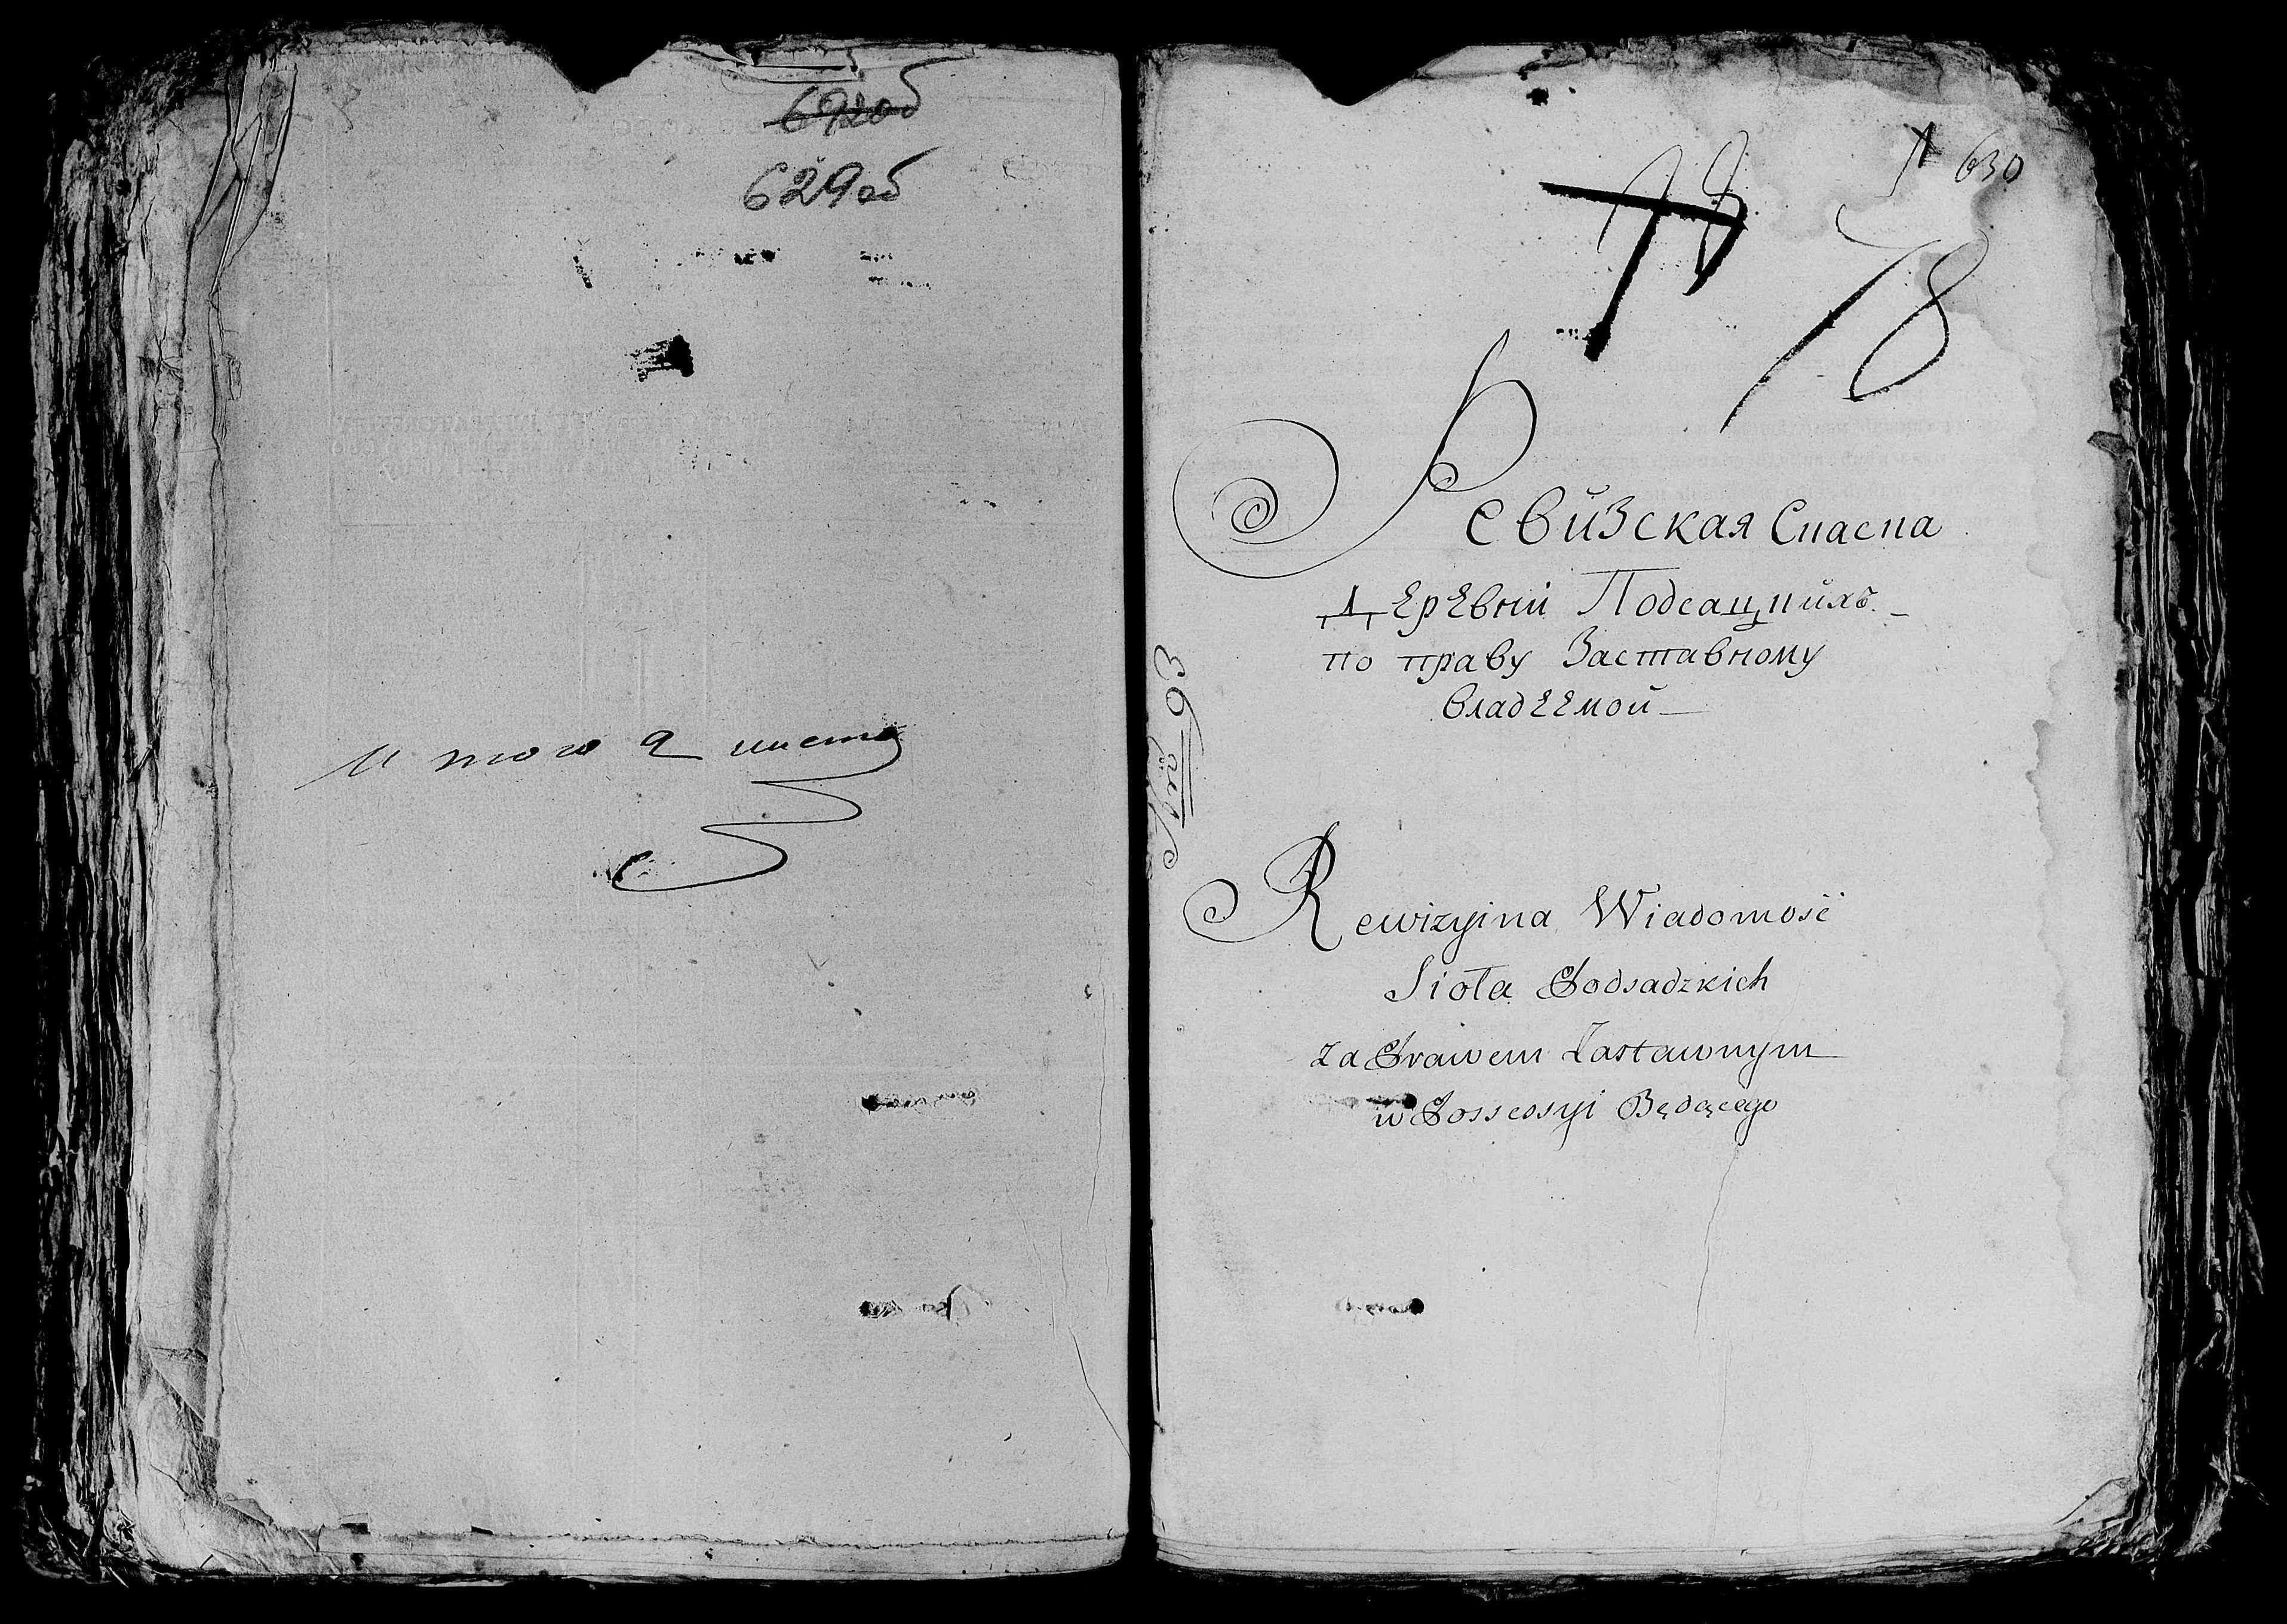 692об
629об
итого 2 листа
630
78
78
Ревизская Спаспа
Деревни Подсацпихъ
по праву Заставному
владеемой
Rewizyina Wiadomość
Sioła Podsadzkich
za Prawem Zastawnym
w Possessyi Będącego